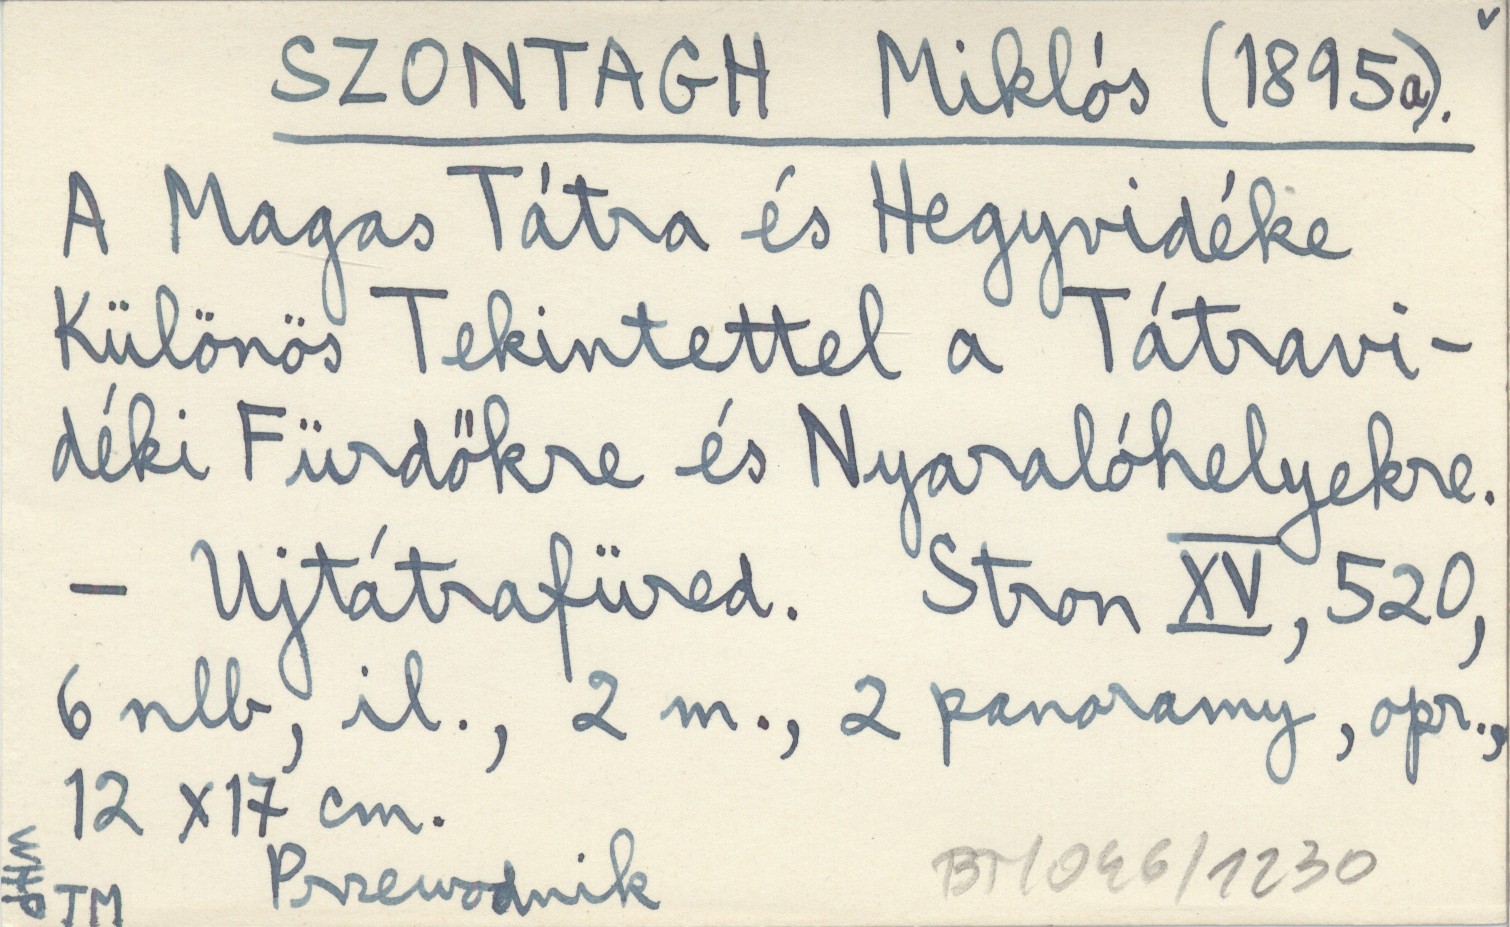 SZONTAGH Miklós (1895a). v
A Magas Tátra és Hegyvidéke
Különös Tekintettel a Tátravi-
déki Fürdőkre és Nyaralóhelyekre.
- Ujtátrafüred. Stron XV, 520,
6 nlb, il., 2 m., 2 panoramy, opr.,
12 x 17 cm.
Przewodnik
WHP
TM
/1230